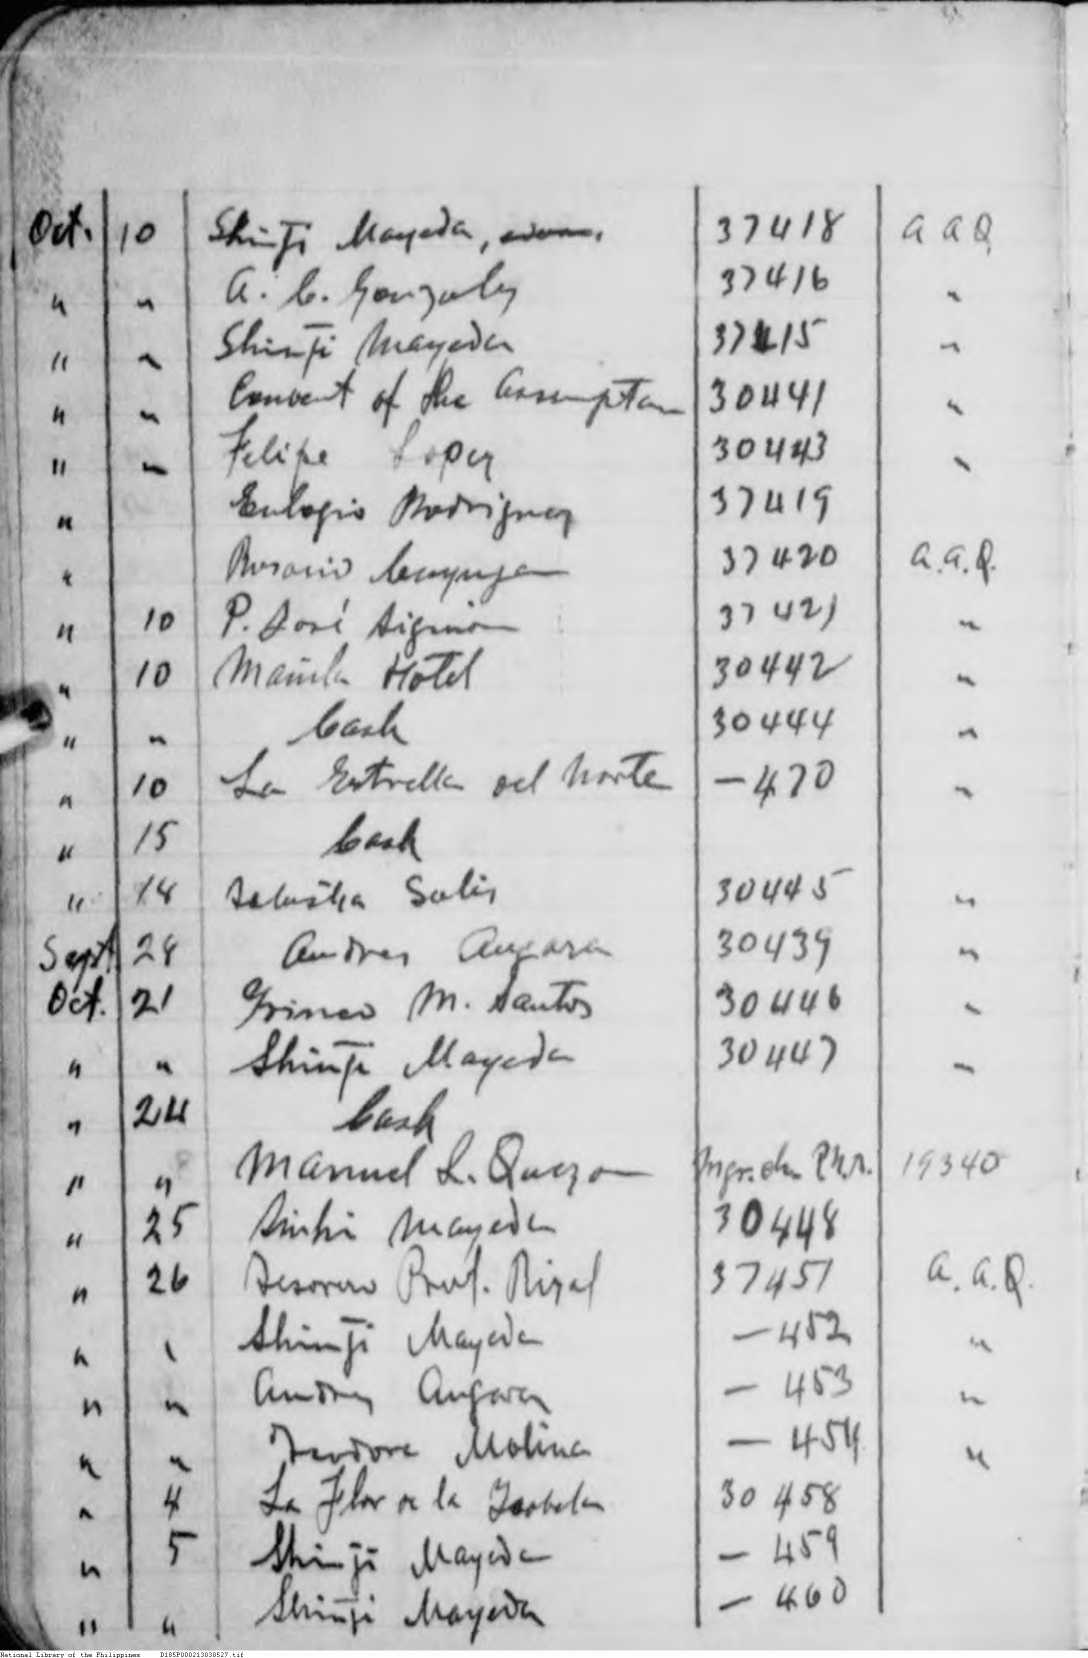 Oct. 10 Shinji Mayeda, 37418 a a Q
" " A. C. Gonzales 37416 "
" " Shinji Mayeda 37415 "
" " Convent of the Assumption 30441 "
" " Felipe Lopez 30443 "
" Eulogio Rodriguez 37419
" Rosario 37420 a.a.Q.
" 10 P. José 37421 "
" 10 Manila Hotel 30442 "
" " Cash 30444 "
" 10 La Estrella del Norte — 470 "
" 15 Cash
" 18 Solis 30445 "
Sept. 28 Andres Angara 30439 "
Oct. 21 M. Santos 30446 "
" " Shinji Mayeda 30447 "
" 24 Cash
" " Manuel L. Quezon 19340
" 25 Mayeda 30448
" 26 Tesorero Prov. Rizal 37451 a.a.Q.
" " Shinji Mayeda — 452 "
" " Andres Angara — 453 "
" " Teodora Molina — 454 "
" 4 La Flor de la Isabela 30458
" 5 Shinji Mayeda — 459
" " Shinji Mayeda — 460
National Library of the Philippines D185P000213038527.tif